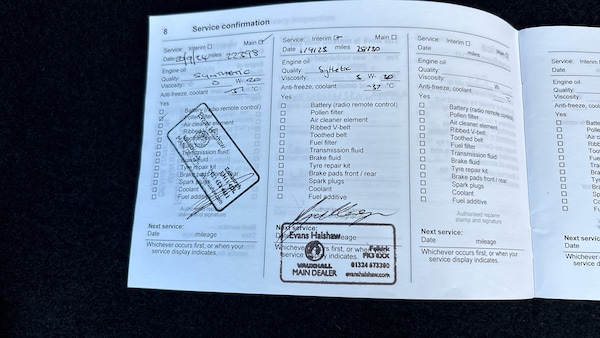 8 Service confirmation
Service: Interim ☐ Main ☐ ✓
Date miles 22398
Engine oil
Quality: SYNTHETIC
Viscosity: 0 W- 20
Anti-freeze, coolant -37 °C
Yes
☐ Battery (radio remote control)
☐ Pollen filter
☐ Air cleaner element
☐ Ribbed
☐ Fuel
☐ Transmission fluid
☐ Brake fluid
☐ Tyre repair kit
☐ Brake pads
☐ Coolant
☐ Fuel additive
Evans Halshaw
MAIN DEALER
Authorised repairer
stamp and signature
Next service:
Date mileage
Whichever occurs first, or when your
service display indicates.
Service: Interim ☐ ✓ Main ☐
Date miles
Engine oil
Quality: Sythetic
Viscosity: 5 W- 30
Anti-freeze, coolant -37 °C
Yes
☐ Battery (radio remote control)
☐ Pollen filter
☐ Air cleaner element
☐ Ribbed V-belt
☐ Toothed belt
☐ Fuel filter
☐ Transmission fluid
☐ Brake fluid
☐ Tyre repair kit
☐ Brake pads front / rear
☐ Spark plugs
☐ Coolant
☐ Fuel additive
Next service:
Evans Halshaw
VAUXHALL
MAIN DEALER
Falkirk
FK3 8XX
01324 673380
evanshalshaw.com
Service: Interim ☐ Main ☐
Date miles
Engine oil
Quality:
Viscosity: W-
Anti-freeze, coolant °C
Yes
☐ Battery (radio remote control)
☐ Pollen filter
☐ Air cleaner element
☐ Ribbed V-belt
☐ Toothed belt
☐ Fuel filter
☐ Transmission fluid
☐ Brake fluid
☐ Tyre repair kit
☐ Brake pads front / rear
☐ Spark plugs
☐ Coolant
☐ Fuel additive
Authorised repairer
stamp and signature
Next service:
Date mileage
Whichever occurs first, or when your
service display indicates.
Service: Interim
Date
Engine oil
Quality:
Viscosity:
Anti-freeze, coola
Yes
☐ Batte
☐ Polle
☐ Air c
☐ Ribb
☐ Toot
☐ Fuel
☐ Tran
☐ Bra
☐ Tyr
☐ Br
☐ Sp
☐ C
☐ F
Next servic
Date
Whichever oc
service displa